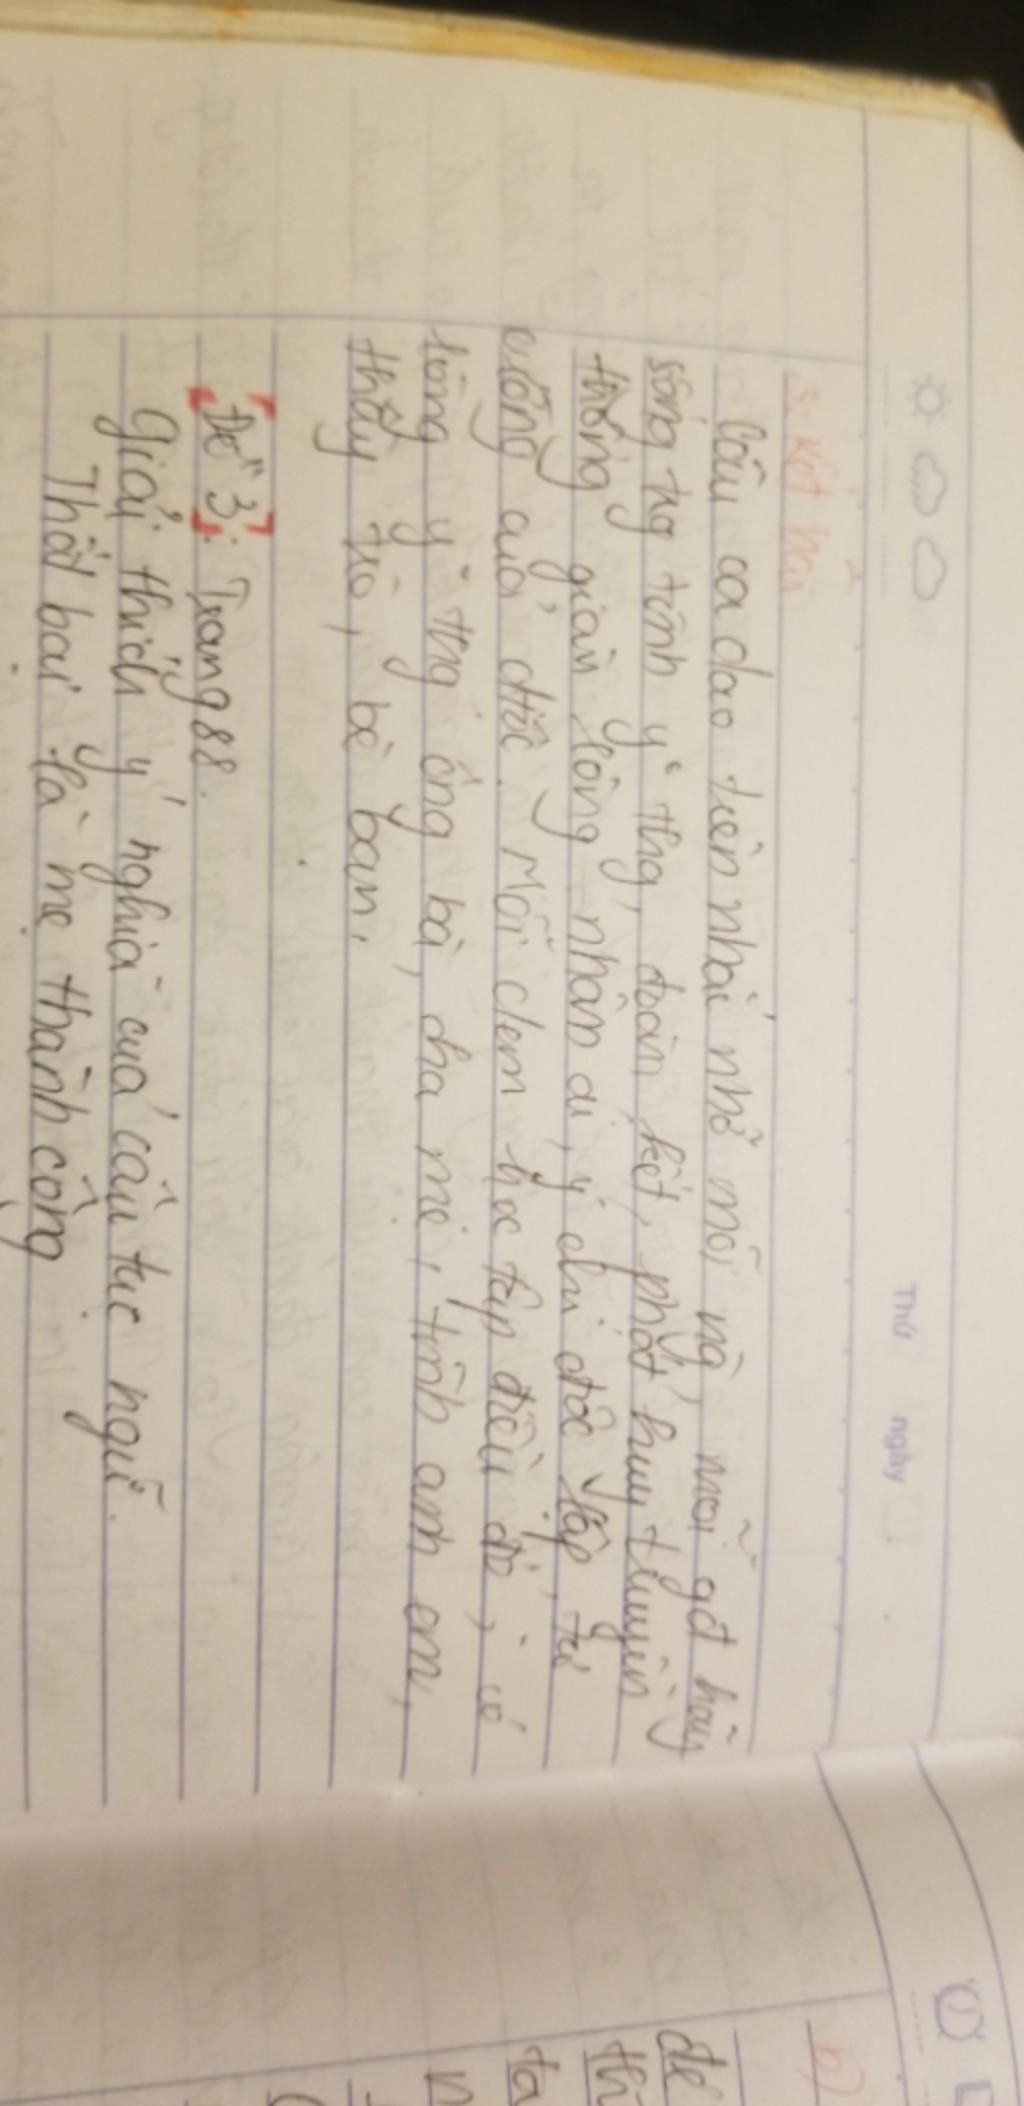 Thứ ngày
3. Kết bài
Câu ca dao trên nhắc nhở mỗi ng, mỗi gđ hãy
sống trg tình y' thg, đoàn kết, phát huy truyền
thống giàu lòng nhân ái, ý chí độc lập, tự
cường của đtộc. Mỗi clem học tập điều đó, có
lòng y' thg ông bà, cha mẹ, tình anh em,
thầy trò, bè bạn.
Đề 3: Trang 88.
Giải thích ý nghĩa của câu tục ngữ.
Thất bại là mẹ thành công
b)
để
ta